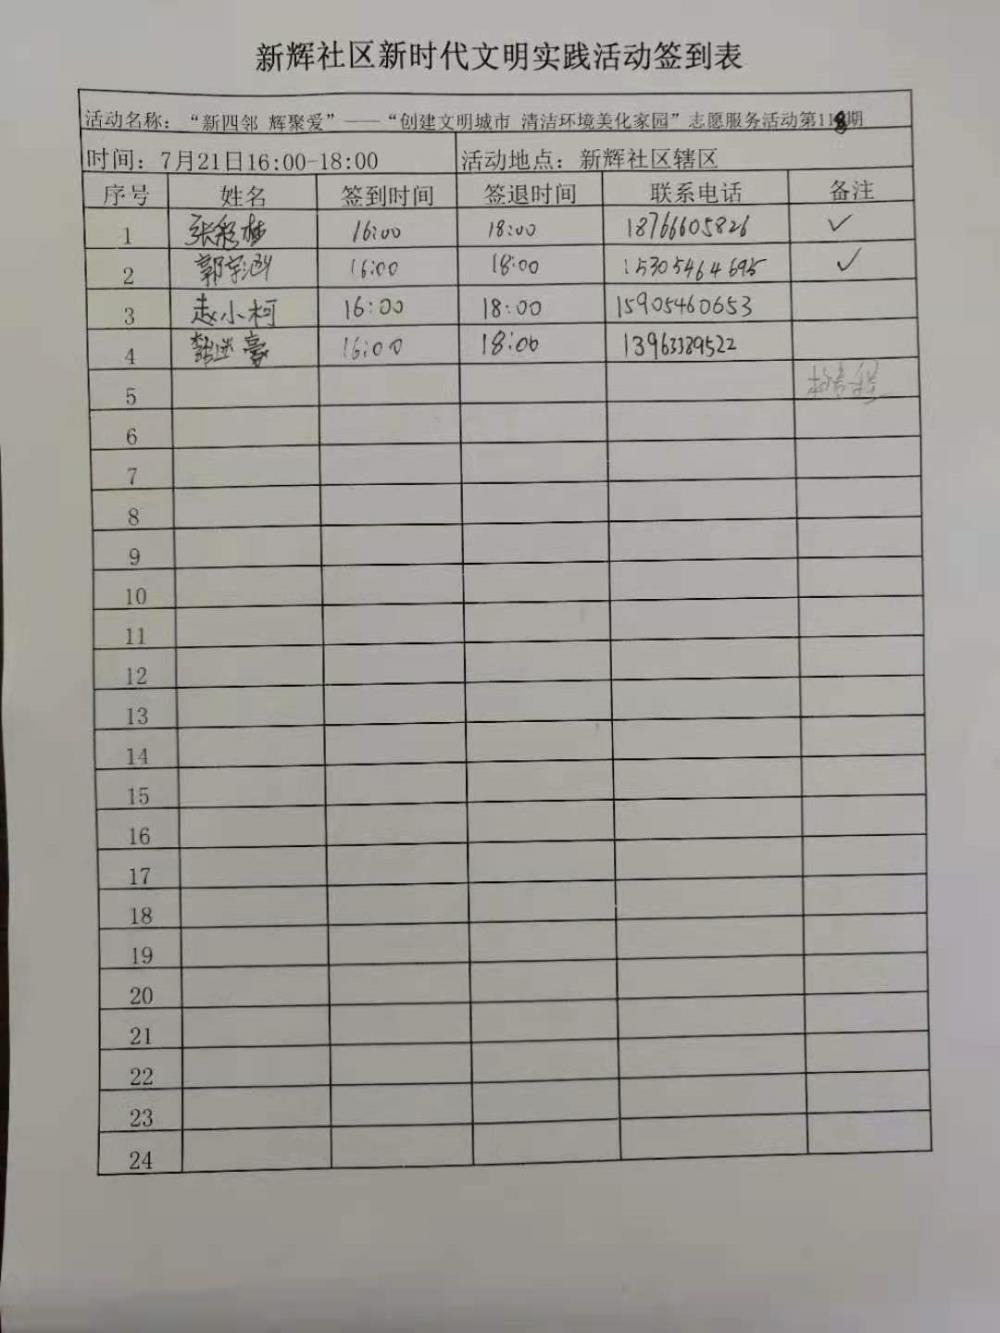 新辉社区新时代文明实践活动签到表
活动名称：“新四邻 辉聚爱”——“创建文明城市 清洁环境美化家园”志愿服务活动第118期
时间：7月21日16:00-18:00 活动地点：新辉社区辖区
序号 姓名 签到时间 签退时间 联系电话 备注
1 张彩梦 16:00 18:00 18766605826 ✓
2 郭宇涵 16:00 18:00 15305464695 ✓
3 赵小柯 16:00 18:00 15905460653
4 豪 16:00 18:00 13963389522
5
6
7
8
9
10
11
12
13
14
15
16
17
18
19
20
21
22
23
24